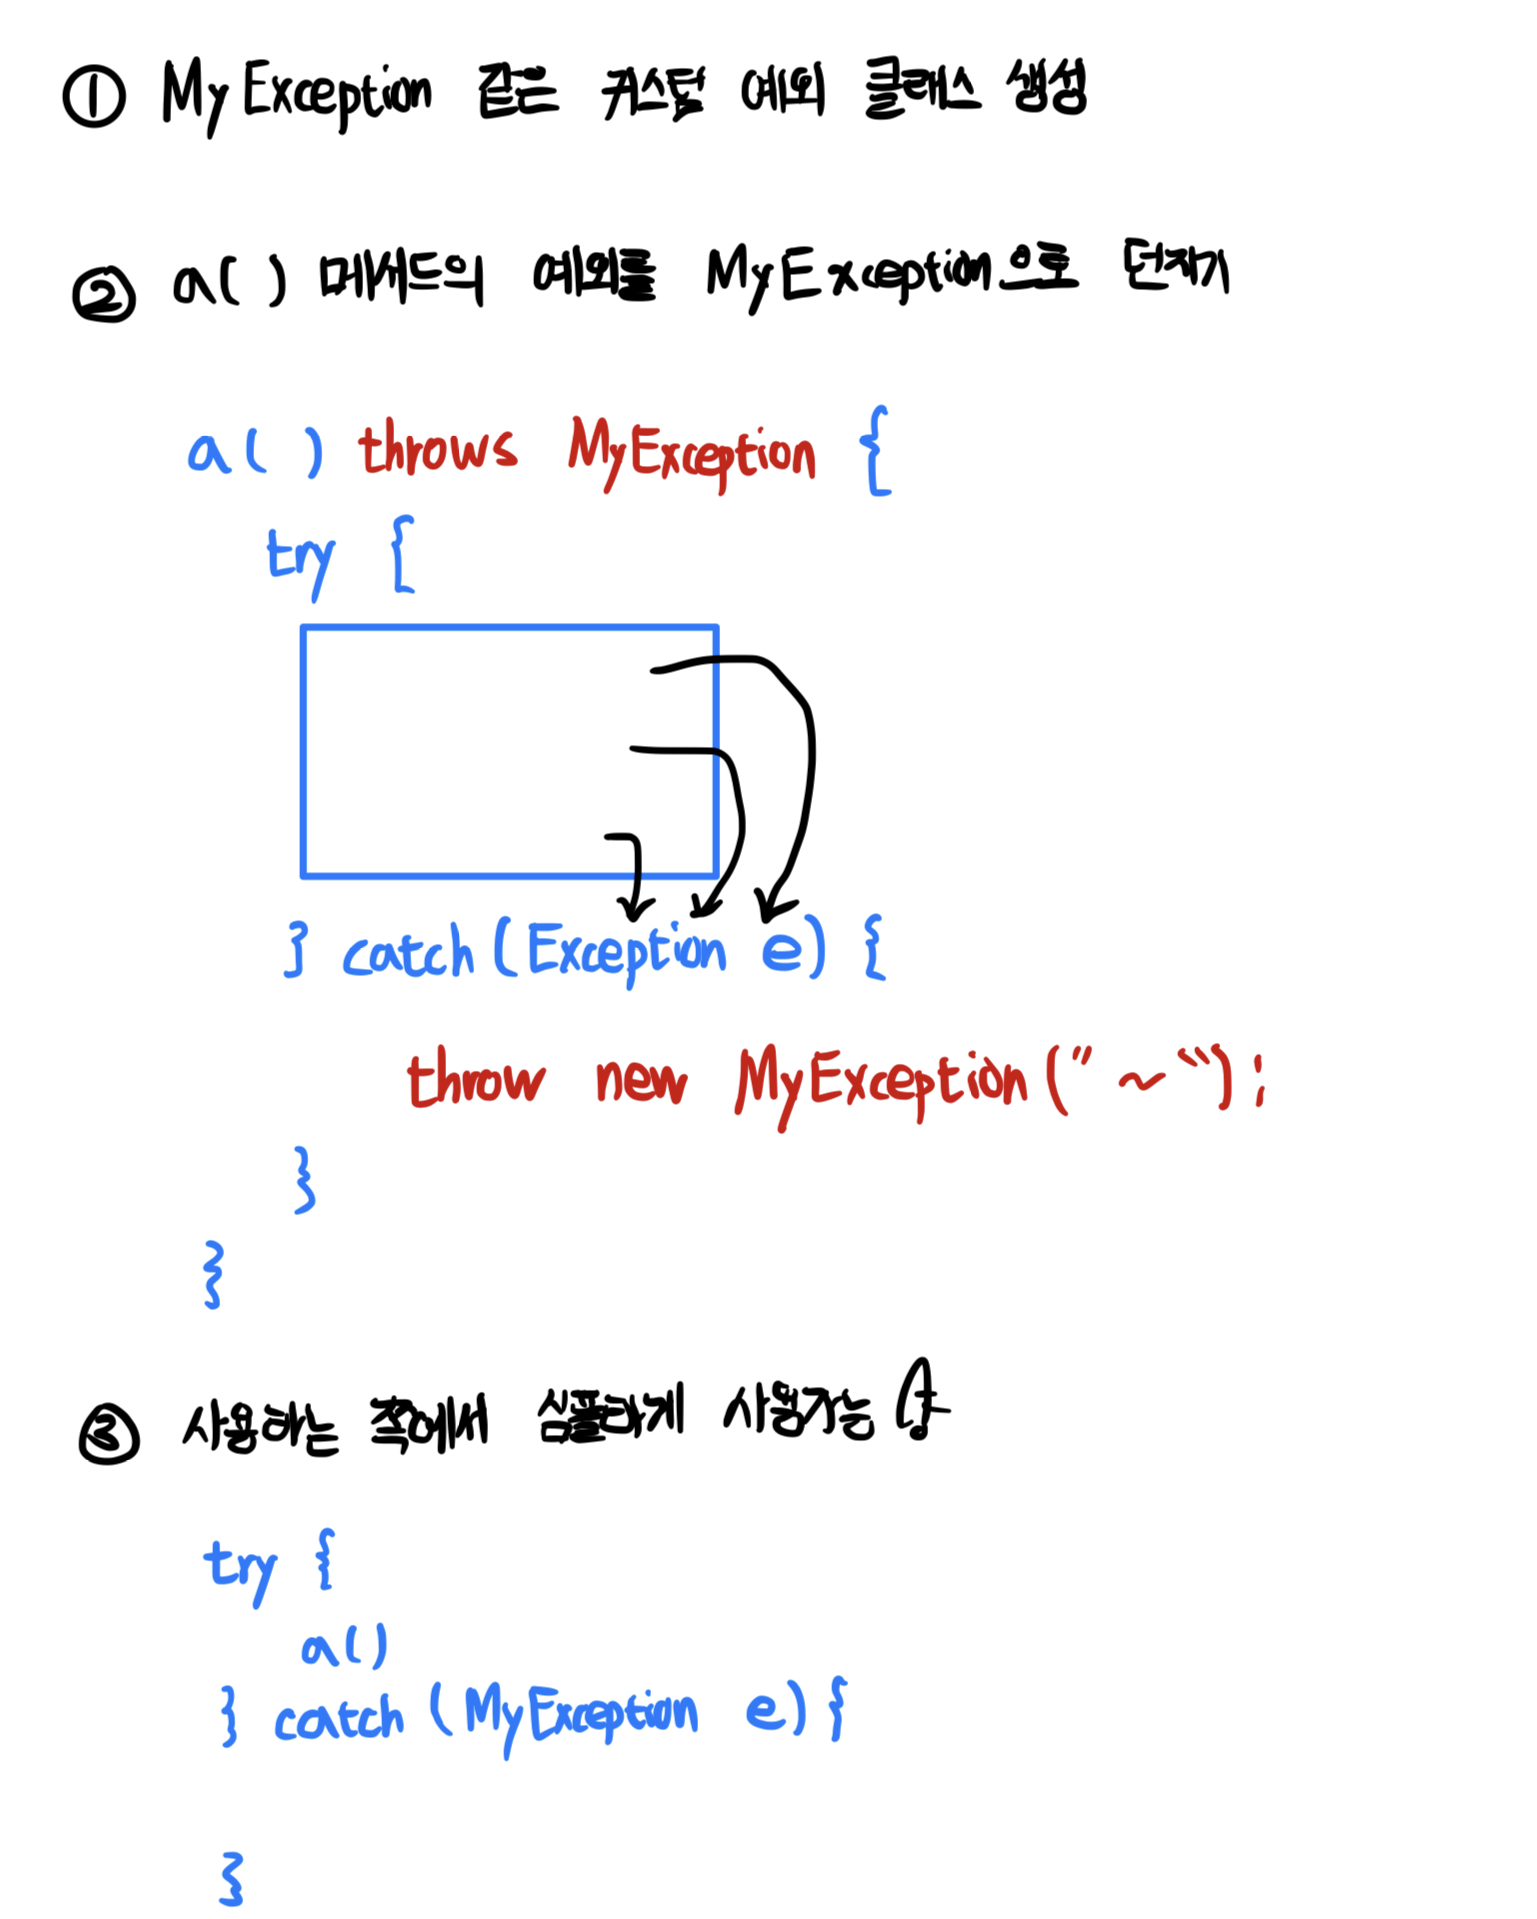 ① MyException 같은 커스텀 예외 클래스 생성
② a( ) 메서드의 예외를 MyException으로 던지기
a( ) throws MyException {
try {
} catch (Exception e) {
throw new MyException("~");
}
}
③ 사용하는 쪽에서 심플하게 사용가능
try {
a()
} catch (MyException e) {
}